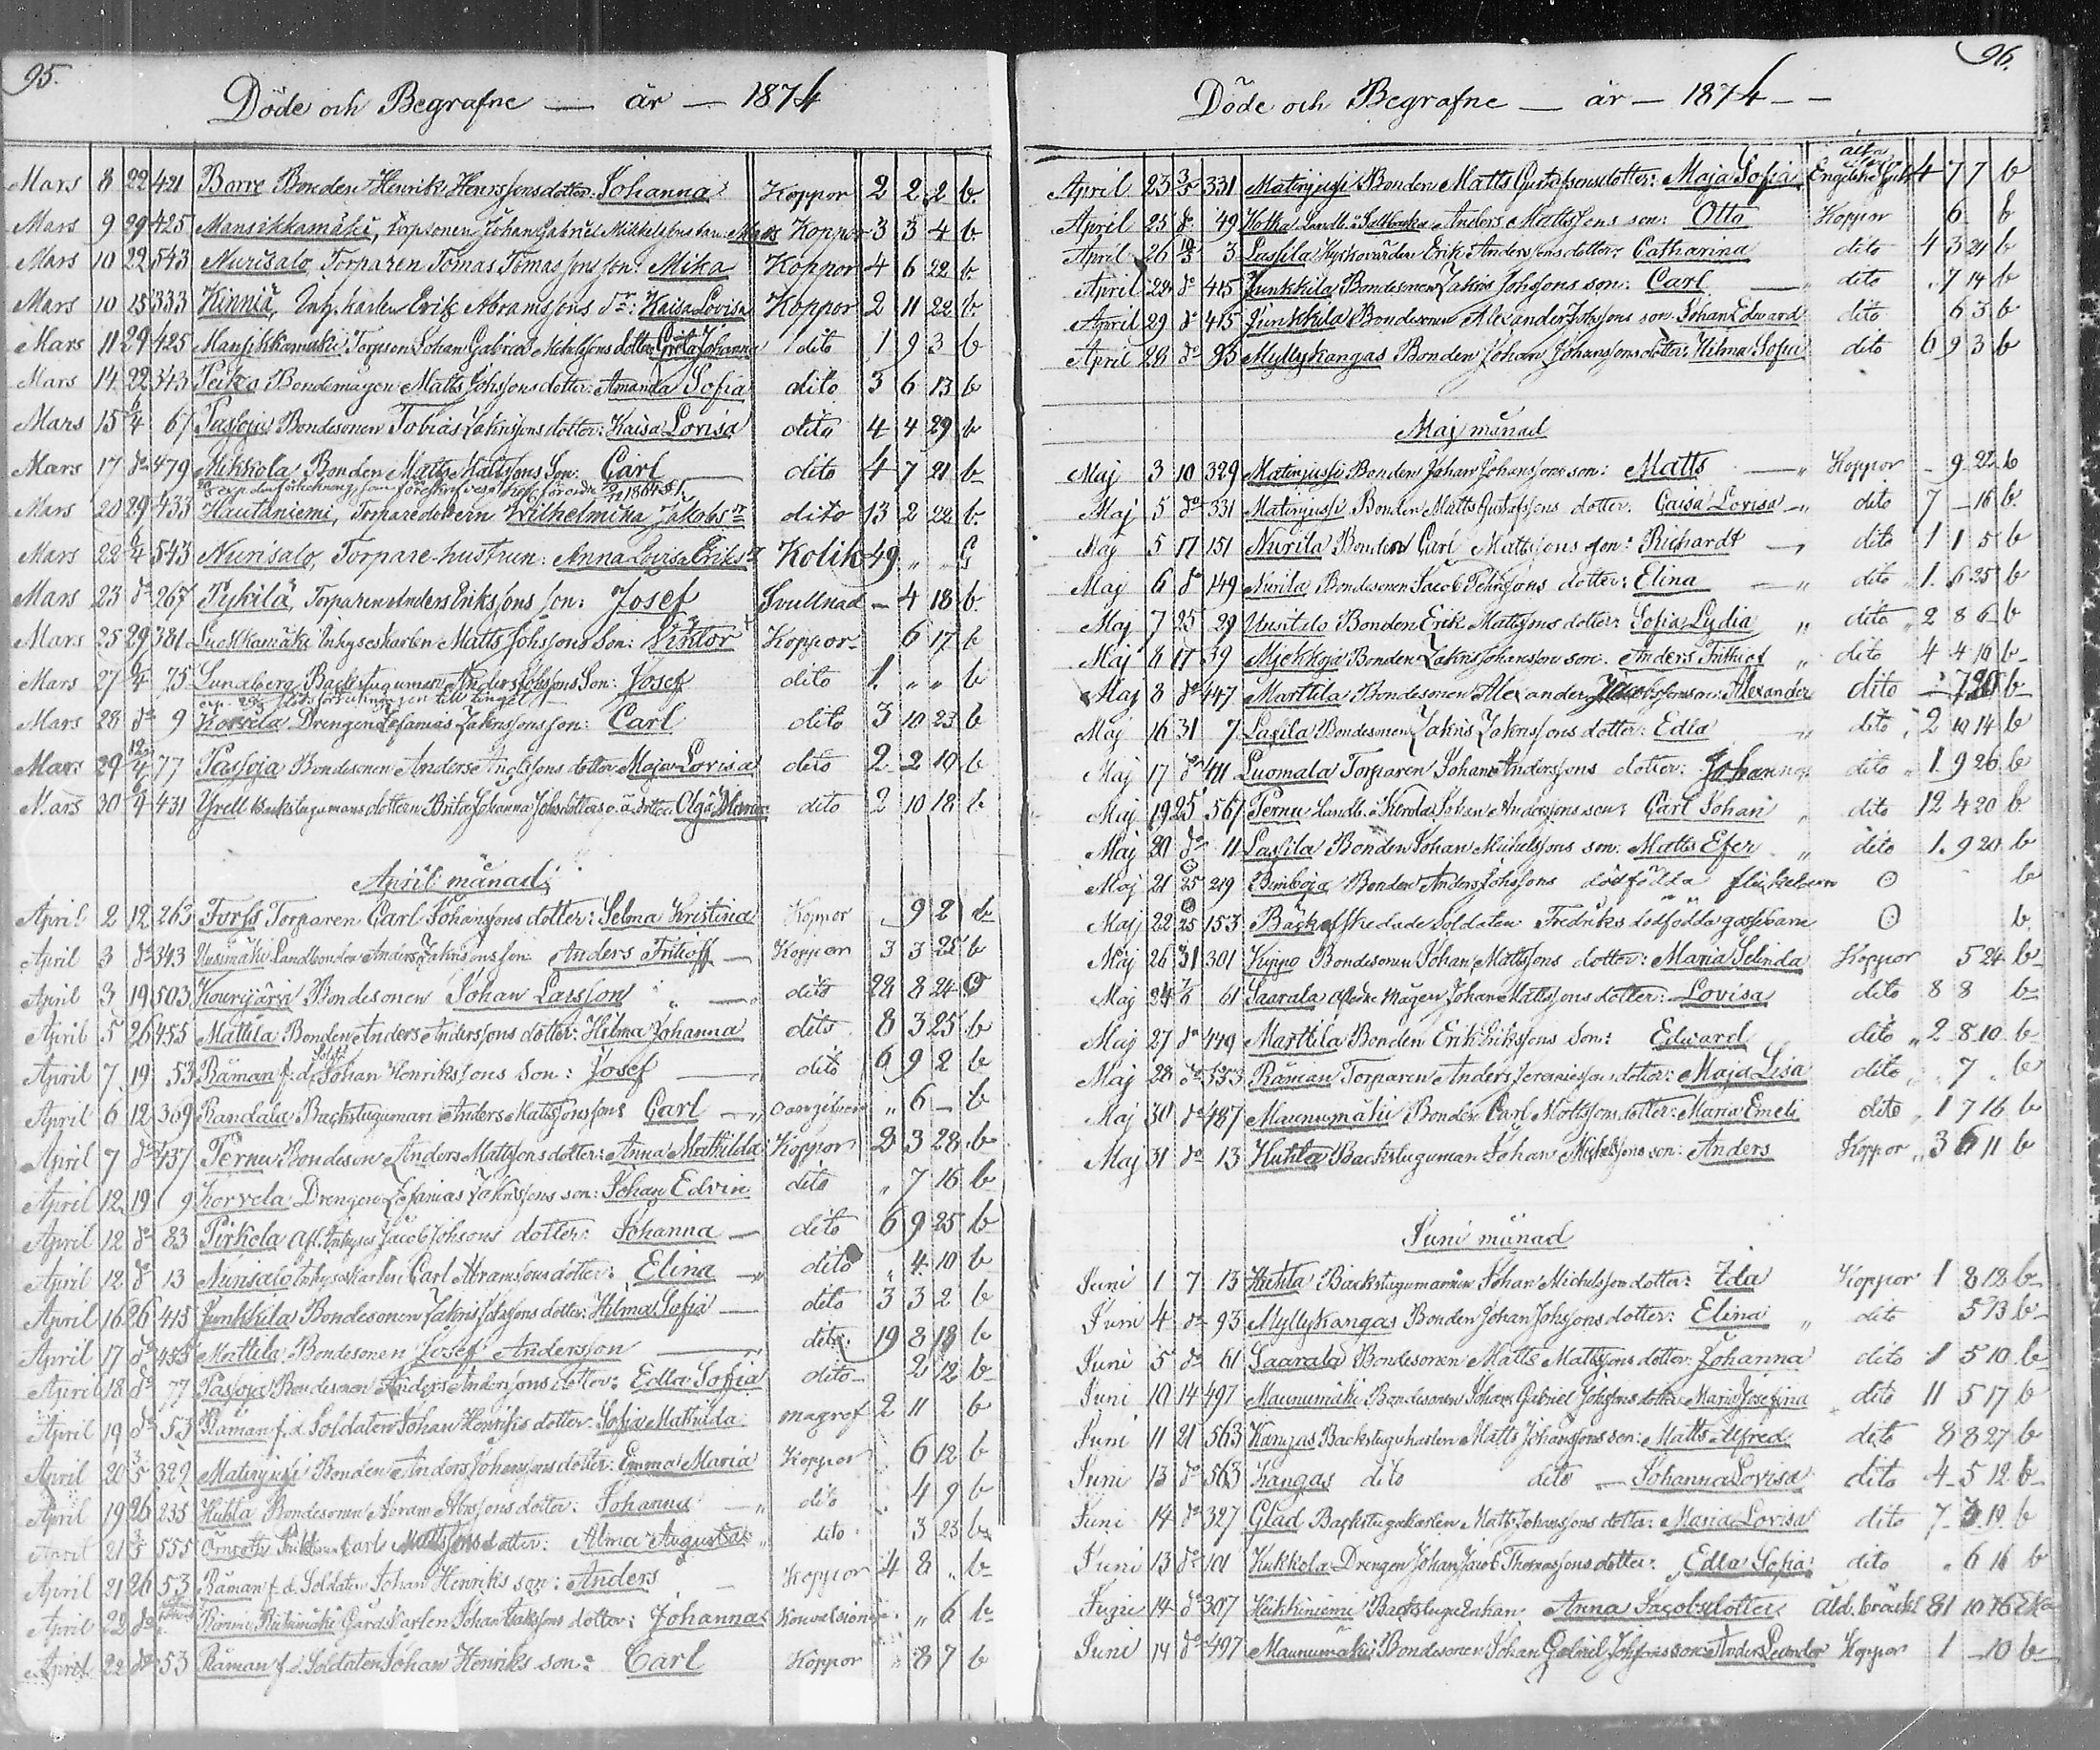 95.
Döde och Begrafne — år — 1874
Mars 8 22 421 Barre Bonden Henrik Henrssons dotter: Johanna Koppor 2 2 2 b.
Mars 9 29 425 Mansikkamäki, Torpsonen Johan Gabriel Mikkelssons barn Matts Koppor 3 3 4 b
Mars 10 22 543 Nurisalo, Torparen Tomas Tomassons son: Mika Koppor 4 6 22 b
Mars 10 15 333 Kinniä, Inh. karlen Erik Abramssons dr: Kaisa Lovisa Koppor 2 11 22 b
Mars 11 29 425 Mansikkamäki Torpson Johan Gabriel Michelssons dotter Greta Johanna dito 1 9 3 b
Mars 14 22 343 Peika Bondemågen Matts Johssons dotter: Amanda Sofia dito 3 6 13 b
Mars 15 6/4 67 Passoja Bondesonen Tobias Zakrissons dotter: Kaisa Lovisa dito 4 4 29 b
Mars 17 do 479 Mikkola Bonden Matts Mattssons Son: Carl dito 4 7 21 b
Mars 20 29 433 Hautaniemi, Torparedottern Wilhelmina Jakobsdr dito 13 2 22 b.
Mars 22 6/4 543 Nurisalo, Torpare-hustrun: Anna Lovisa Eriksdr Kolik 49 " " G
Mars 23 do 267 Pykilä, Torparen Anders Erikssons son: Josef Svullnad — 4 18 b.
Mars 25 29 381 Luokkamäki Inhyseskarlen Matts Johssons Son: Viktor Koppor 6 17 b
Mars 27 6/4 75 Lundberg Backstuguman Anders Johssons Son: Josef dito 1. " " b
Mars 28 do 9 Korvela Drengen Zefanias Zakrissons son: Carl dito 3 10 23 b
Mars 29 12/4 77 Passoja Bondesonen Anders Anderssons dotter Maja Lovisa dito 2 2 10 b
Mars 30 6/4 431 Yrell Backstugumans dottern Brita Johanna Johsdotters o. ä. dotter Olga Maria dito 2 10 18 b
April månad
April 2 12 263 Turss Torparen Carl Johanssons dotter: Selma Kristina Koppor 9 2 b
April 3 do 343 Uusimäki Landbonden Anders Zakrissons son Anders Fritioff — Koppor 3 3 25 b
April 3 19 503 Kourijärvi Bondesonen Johan Larsson " — dito 28 8 24 G
April 5 26 455 Mattila Bonden Anders Anderssons dotter: Hilma Johanna dito 8 3 25 b
April 7 19 53 Råman f. d. Soldt Johan Henrikssons Son: Josef — dito 6 9 2 b
April 6 12 369 Randala Backstuguman Anders Mattssons son: Carl — " 6 — b
April 7 do 437 Pernu Bondeson Anders Mattssons dotter: Anna Mathilda Koppor 2 3 28 b
April 12 19 9 Korvela Drengen Zefanias Zakrissons son: Johan Edvin dito " 7 16 b
April 12 do 83 Pirkola Afl. Inhyses Jacob Johsons dotter: Johanna — dito 6 9 25 b
April 12 do 13 Nurisalo Inhyseskarlen Carl Abramssons dotter: Elina — dito " 4 10 b
April 16 26 415 Junkkila Bondesonen Zakris Johssons dotter: Hilma Sofia — dito 3 3 2 b
April 17 do 455 Mattila Bondesonen Josef Andersson — dito 19 8 18 b
April 18 do 77 Passoja Bondesonen Anders Anderssons dotter: Edla Sofia dito 2 12 b
April 19 do 53 Råman f. d. Soldaten Johan Henriks dotter: Sofia Mathilda magref 2 11 b
April 20 3/5 329 Matinjussi Bonden Anders Johanssons dotter: Emma Maria Koppor 6 12 b
April 19 26 235 Huhta Bondesonen Abram Abrssons dotter: Johanna — " dito 4 9 b
April 21 3/5 555 Carl Mattssons dotter: Alma Augusta " dito 3 23 b
April 21 26 53 Råman f. d. Soldaten Johan Henriks son: Anders Koppor 4 8 " b
April 22 do Gårdskarlen Johan Isakssons dotter: Johanna " 6 b
April 22 do 53 Råman f. d. Soldaten Johan Henriks son: Carl Koppor " 8 7 b
96.
Döde och Begrafne — år — 1874 — —
April 23 3/5 331 Matinjussi Bonden Matts Gustafssons dotter: Maja Sofia Engelska Sjuk 4 7 7 b
April 25 do 49 Anders Mattssons son: Otto Koppor 6 b
April 26 10/5 3 Lassila Kyrkovärden Erik Anderssons dotter: Catharina dito 4 3 21 b
April 28 do 415 Junkkila Bondesonen Zakris Johssons son: Carl — dito " 7 14 b
April 29 do 415 Junkkila Bondesonen Alexander Johssons son Johan Edvard dito 6 3 b
April 28 do 95 Myllykangas Bonden Johan Johanssons dotter: Hilma Sofia dito 6 9 3 b
Maj månad
Maj 3 10 329 Matinjussi Bonden Johan Johanssons son: Matts — " Koppor — 9 22 b
Maj 5 do 331 Matinjussi Bonden Matts Gustafssons dotter: Caisa Lovisa — " dito 7 — 16 b
Maj 5 17 151 Nurila Bonden Carl Mattssons son: Richardt — " dito 1 1 5 b
Maj 6 do 149 Nurila Bondesonen Jacob Johssons dotter: Elina — " dito 1. 6 25 b
Maj 7 25 29 Uusitalo Bonden Erik Mattssons dotter: Sofia Lydia " dito 2 8 6 b
Maj 8 17 39 Myckkoja Bonden Zakris Johansson son: Anders Frithiof " dito 4 4 16 b
Maj 8 do 447 Marttila Bondesonen Alexander Jacobssons son: Alexander dito — 7 20 b
Maj 16 31 7 Lassila Bondesonen Zakris Zakrissons dotter: Edla " dito 2 10 14 b
Maj 17 do 411 Luomala Torparen Johan Anderssons dotter: Johanna dito 1. 9 26 b
Maj 19 25 561 Pernu Landb. å Kerola Johan Anderssons son: Carl Johan " dito 12 4 20 b
Maj 20 do 11 Lassila Bonden Johan Michelssons son: Matts Efer " dito 1. 9 20 b
Maj 21 25 219 Bonden Anders Johssons dödfödda flickebarn ⊙ b
Maj 22 25 153 Bäck afskedade Soldaten Fredriks dödfödda gossebarn ⊙ b
Maj 26 31 301 Kippo Bondesonen Johan Mattssons dotter: Maria Selinda Koppor 5 24 b
Maj 24 7/6 61 Saarala Mågen Johan Mattssons dotter: Lovisa dito 8 8 b
Maj 27 do 449 Marttila Bonden Erik Erikssons Son: Edward dito " 2 8 10 b
Maj 28 do 553 Råman Torparen Anders Jeremiessons dotter: Maja Lisa dito " " 7 " b
Maj 30 do 487 Maunumäki Bonden Carl Mattssons dotter: Maria Emeli dito " 1 7 16 b
Maj 31 do 13 Huhta Backstuguman Johan Michelssons son: Anders Koppor " 3 6 11 b
Juni månad
Juni 1 7 13 Huhta Backstugumannen Johan Michelsson dotter: Ida Koppor 1 8 12 b
Juni 4 do 93 Myllykangas Bonden Johan Johssons dotter: Elina " dito 5 13 b
Juni 5 do 61 Saarala Bondesonen Matts Mattssons dotter: Johanna dito 1 5 10 b
Juni 10 14 497 Maunumäki Bondesonen Johan Gabriel Johssons dotter Maria Josefina dito 11 5 17 b
Juni 11 21 563 Kangas Backstugukarlen Matts Johanssons son: Matts Alfred dito 8 8 27 b
Juni 13 do 563 Kangas dito dito — Johanna Lovisa dito 4 5 12 b
Juni 14 do 327 Glad Backstugukarlen Matts Johanssons dotter: Maria Lovisa dito 7 3 19 b
Juni 13 do 101 Kukkola Drengen Johan Jacob Thomassons dotter: Edla Sofia dito " 6 16 b
Juni 14 do 307 Heikkiniemi Backstuguenkan Anna Jacobsdotter Åld. bräckl 81 10 16 Eka
Juni 14 do 497 Maunumäki Bondesonen Johan Gabriel Johssons son: Anders Leander Koppor 1 — 10 b